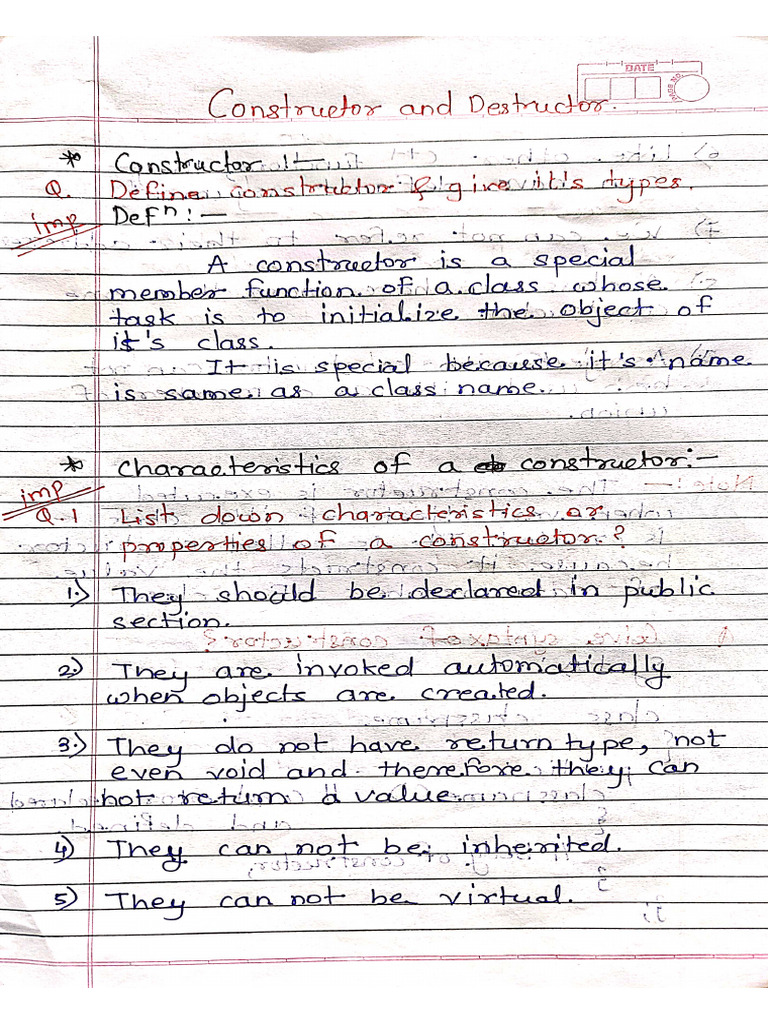 DATE
PAGE NO.
Constructor and Destructor.
* Constructor :-
Q. Define constructor & give it's types.
imp Defn :-
A constructor is a special
member function of a class whose
task is to initialize the object of
it's class.
It is special because it's name
is same as a class name.
* Characteristics of a constructor:-
imp
Q.1 List down characteristics or
properties of a constructor?
1.) They should be declared in public
section.
2.) They are invoked automatically
when objects are created.
3.) They do not have return type, not
even void and therefore they can
not return a value.
4) They can not be inherited.
5) They can not be virtual.